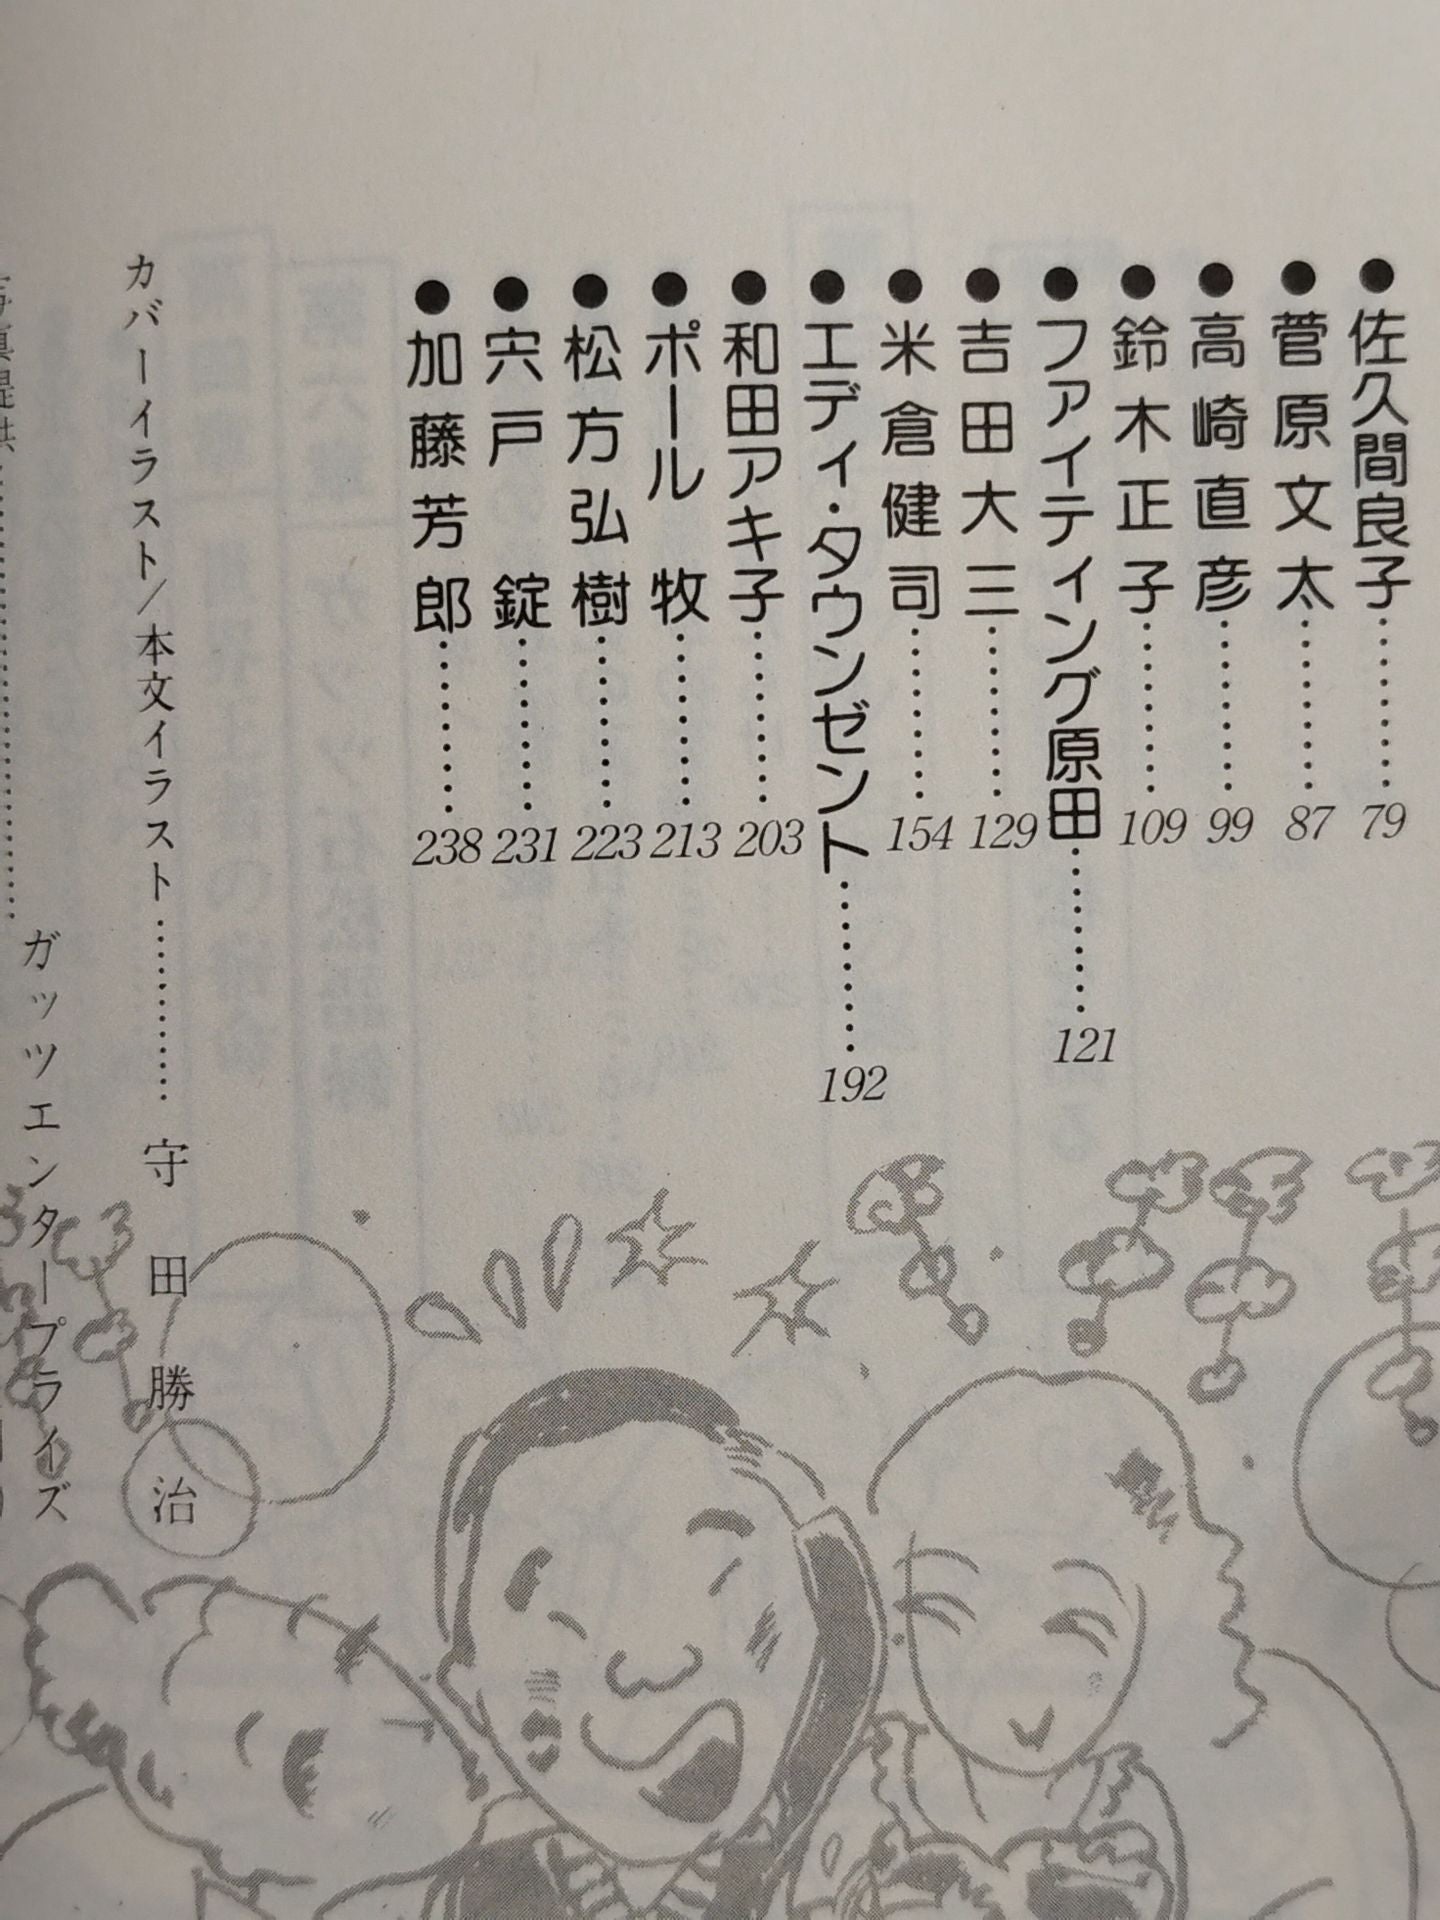 ●佐久間良子………79
●菅原文太………87
●高崎直彦………99
●鈴木正子………109
●ファイティング原田………121
●吉田大三………129
●米倉健司………154
●エディ・タウンゼント………192
●和田アキ子………203
●ポール 牧………213
●松方弘樹………223
●宍戸 錠………231
●加藤芳郎………238
カバーイラスト/本文イラスト…………守田勝治
写真提供……………………ガッツエンタープライズ